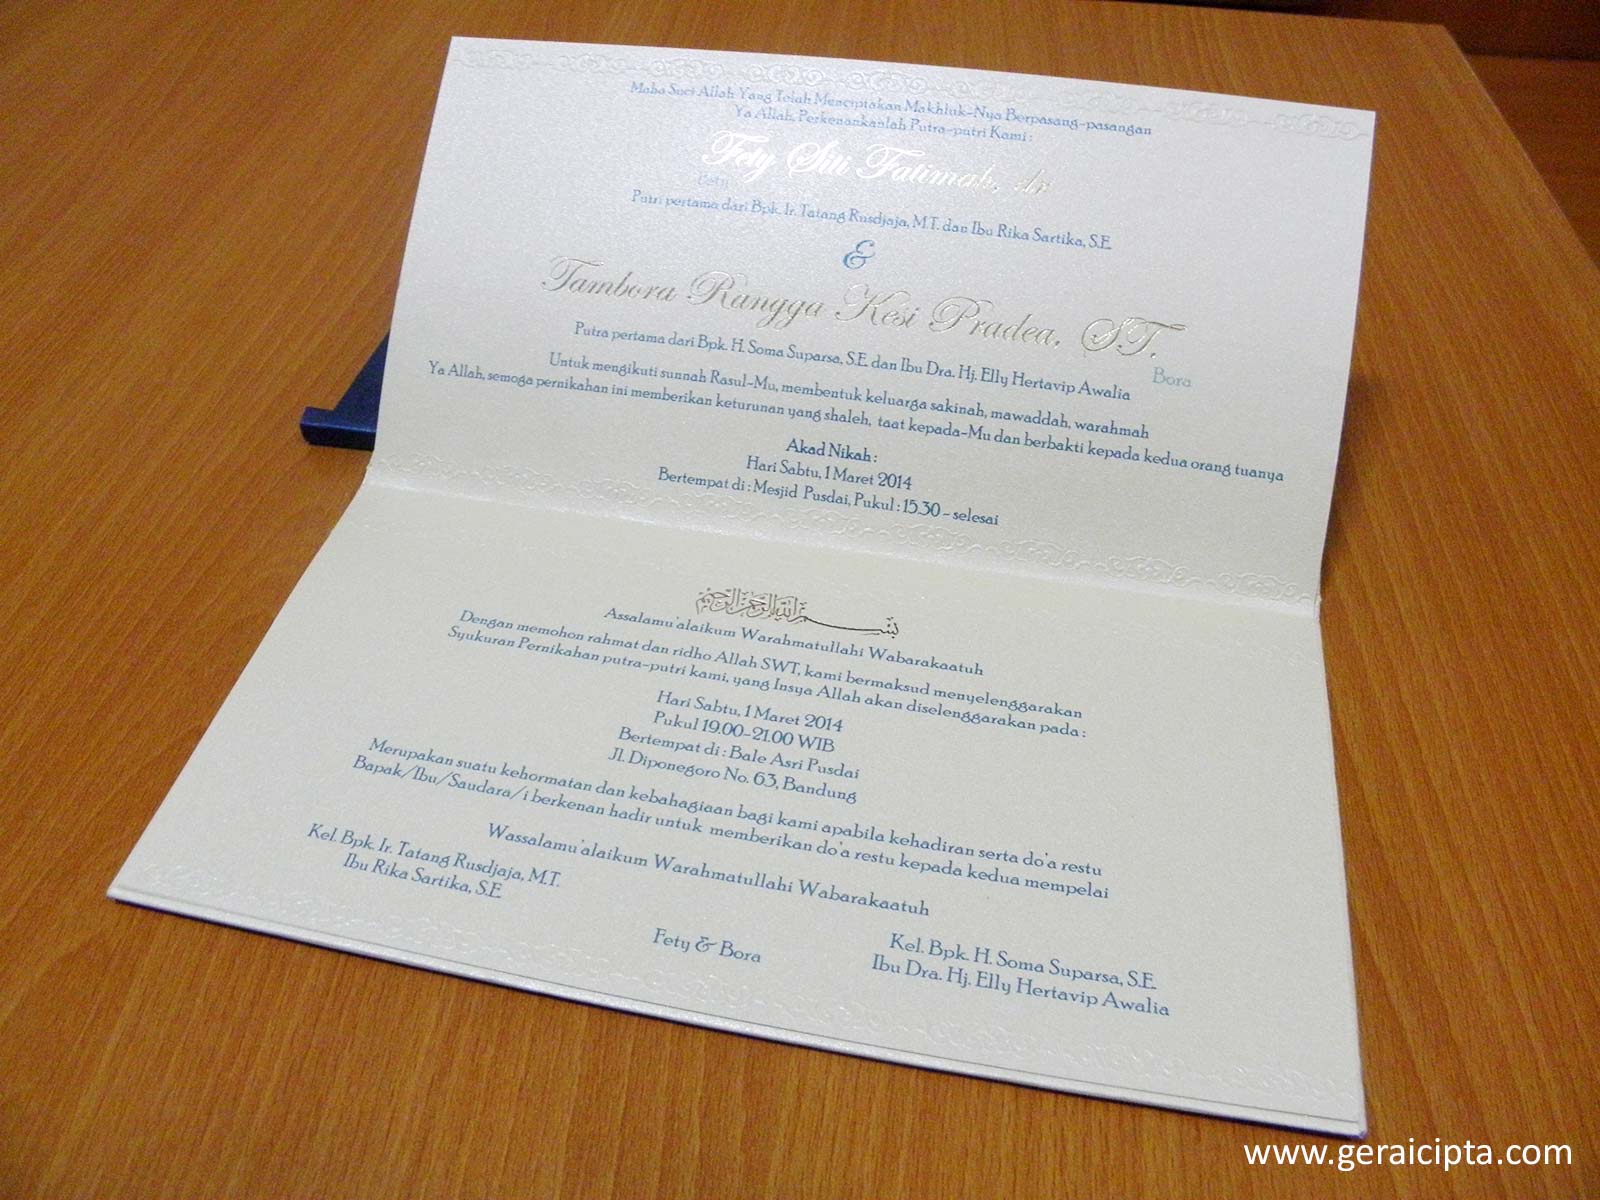 Maha Suci Allah Yang Telah Menciptakan Makhluk-Nya Berpasang-pasangan
Ya Allah, Perkenankanlah Putra-putri Kami :
Fety Siti Fatimah, dr
Fety
Putri pertama dari Bpk. Ir. Tatang Rusdjaja, M.T. dan Ibu Rika Sartika, S.E.
&
Tambora Rangga Kesi Pradea, S.T.
Bora
Putra pertama dari Bpk. H. Soma Suparsa, S.E. dan Ibu Dra. Hj. Elly Hertavip Awalia
Untuk mengikuti sunnah Rasul-Mu, membentuk keluarga sakinah, mawaddah, warahmah
Ya Allah, semoga pernikahan ini memberikan keturunan yang shaleh, taat kepada-Mu dan berbakti kepada kedua orang tuanya
Akad Nikah :
Hari Sabtu, 1 Maret 2014
Bertempat di : Mesjid Pusdai, Pukul : 15.30 - selesai
بسم الله الرحمن الرحيم
Assalamu'alaikum Warahmatullahi Wabarakaatuh
Dengan memohon rahmat dan ridho Allah SWT, kami bermaksud menyelenggarakan
Syukuran Pernikahan putra-putri kami, yang Insya Allah akan diselenggarakan pada :
Hari Sabtu, 1 Maret 2014
Pukul 19.00-21.00 WIB
Bertempat di : Bale Asri Pusdai
Jl. Diponegoro No. 63, Bandung
Merupakan suatu kehormatan dan kebahagiaan bagi kami apabila kehadiran serta do'a restu
Bapak/Ibu/Saudara/i berkenan hadir untuk memberikan do'a restu kepada kedua mempelai
Wassalamu'alaikum Warahmatullahi Wabarakaatuh
Kel. Bpk. Ir. Tatang Rusdjaja, M.T.
Ibu Rika Sartika, S.E.
Fety & Bora
Kel. Bpk. H. Soma Suparsa, S.E.
Ibu Dra. Hj. Elly Hertavip Awalia
www.geraicipta.com